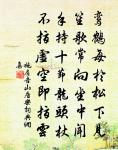 鸞鶴每於松下見
笙歌常向坐中聞
手持十節龍頭杖
不指虛空即指雲
施肩吾山居樂詩